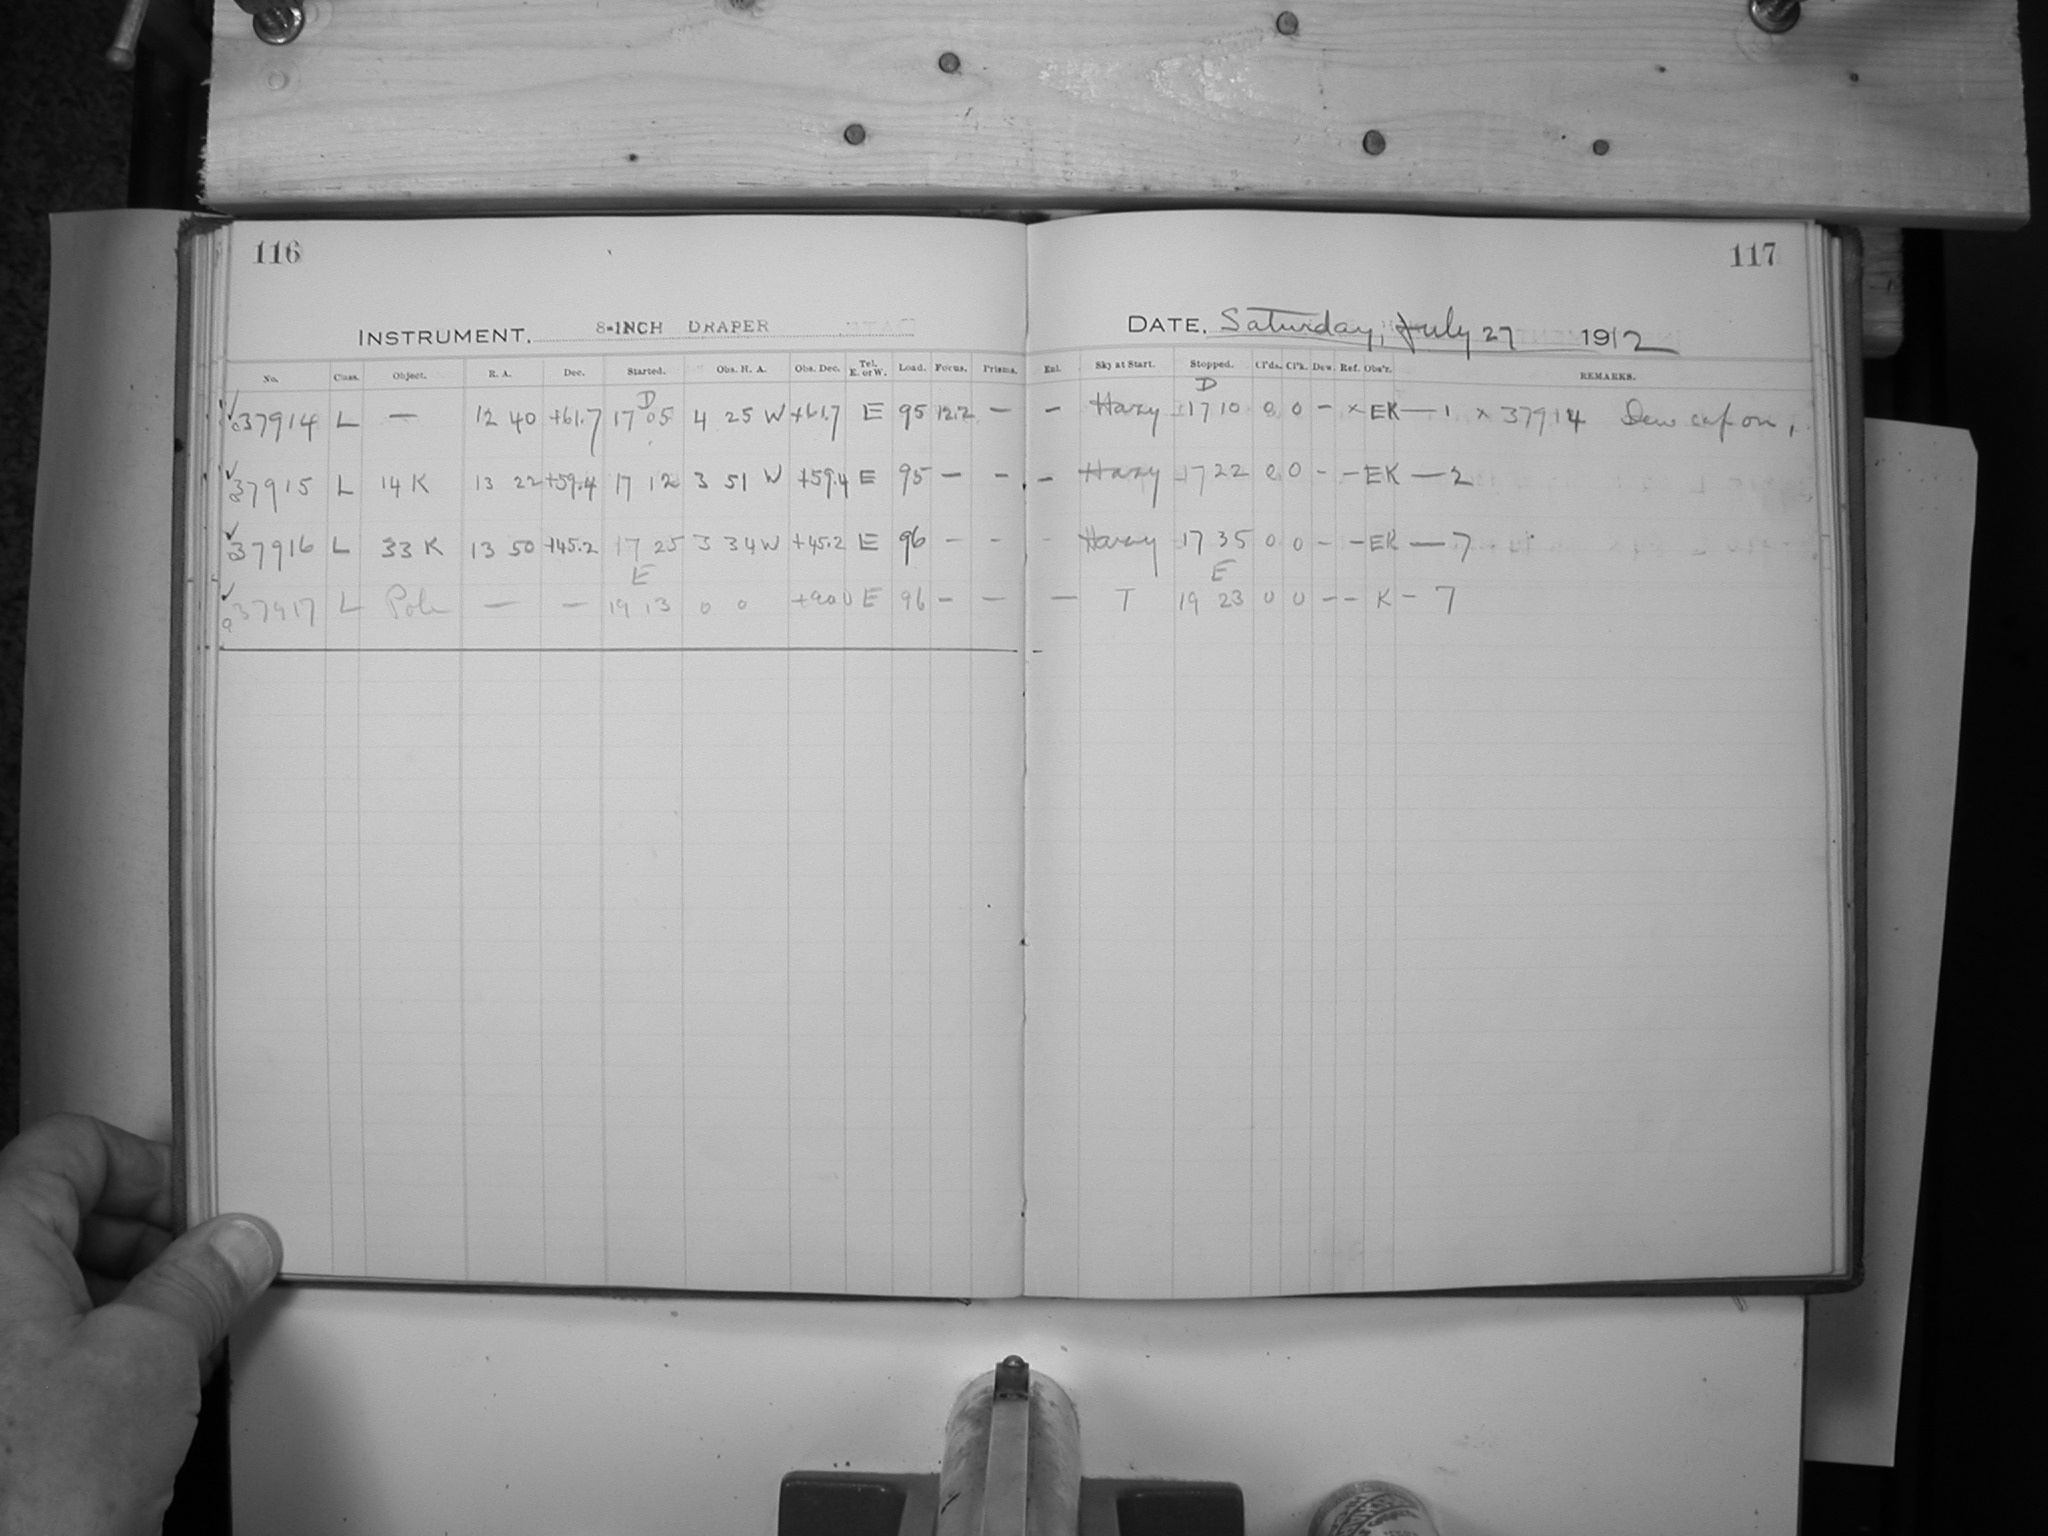 116
117
INSTRUMENT. 8-INCH DRAPER
DATE. Saturday, July 27 1912
No. Class. Object. R. A. Dec. Started. Obs. H. A. Obs. Dec. Tel. E. or W. Load. Focus. Prisms. Enl. Sky at Start. Stopped. Cl'ds. Cl'k. Dew. Ref. Obs'r. REMARKS.
D D
37914 L — 12 40 +61.7 17 05 4 25 W +61.7 E 95 12.2 — — Hazy 17 10 0 0 – × EK — 1 × 37914 Dew cap on,
37915 L 14 K 13 22 +59.4 17 12 3 51 W +59.4 E 95 – – – Hazy 17 22 0 0 – – EK — 2
37916 L 33 K 13 50 +45.2 17 25 3 34 W +45.2 E 96 – – – Hazy 17 35 0 0 – – EK — 7
E E
37917 L Pole — — 19 13 0 0 +90 0 E 96 – — — T 19 23 0 0 – – K – 7